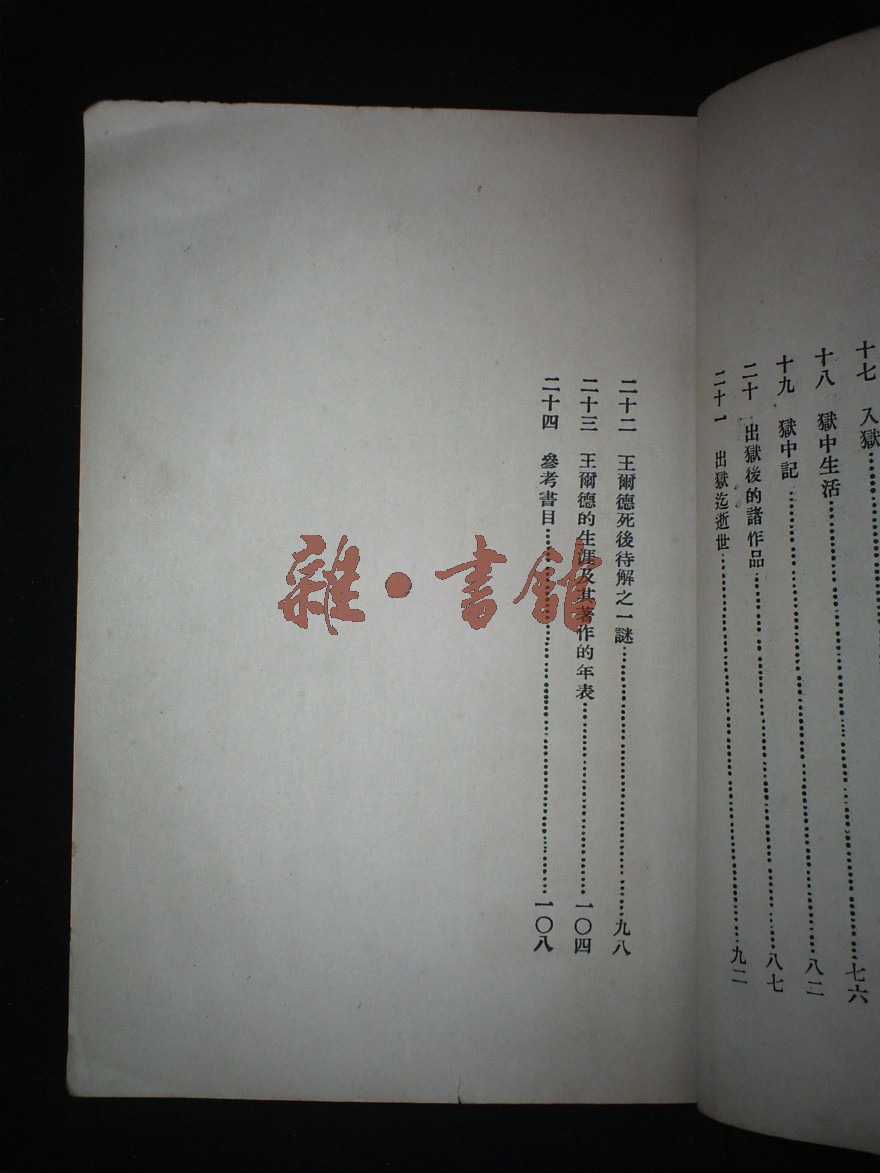 十七　入獄……
十八　獄中生活……七六
十九　獄中記……八二
二十　出獄後的諸作品……八七
二十一　出獄迄逝世……九二
二十二　王爾德死後待解之一謎……九八
二十三　王爾德的生涯及其著作的年表……一〇四
二十四　參考書目……一〇八
雜·書館